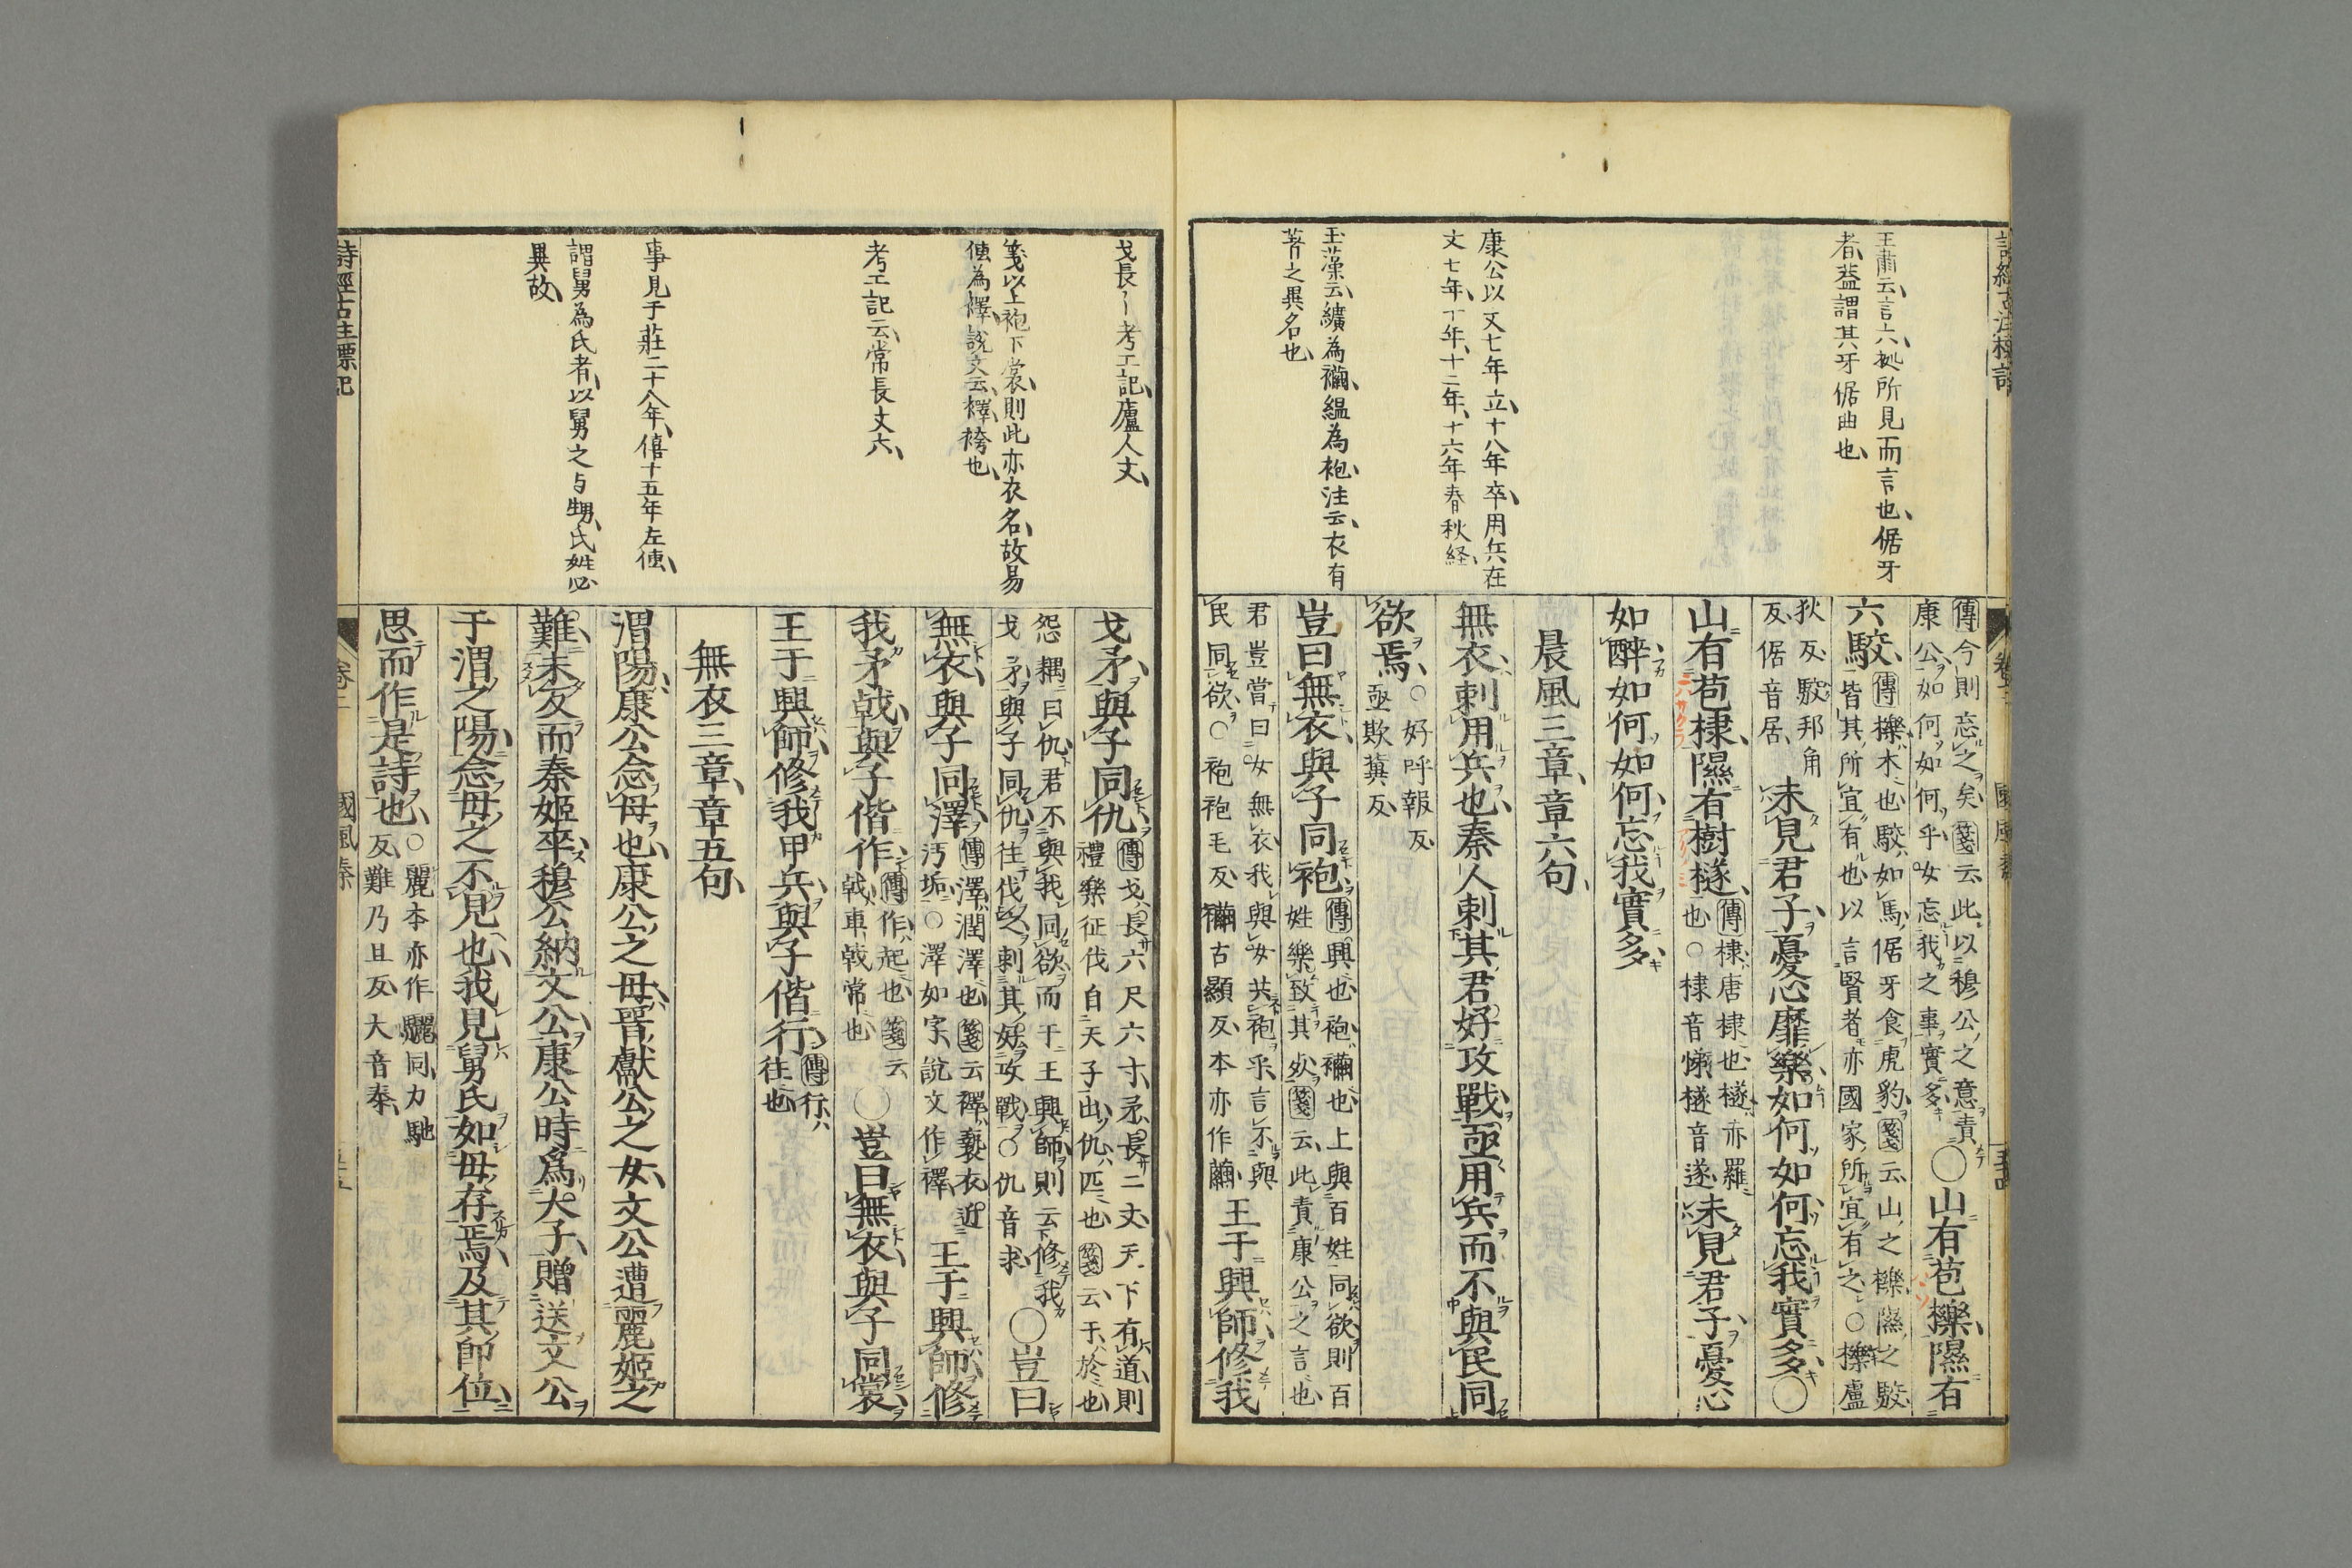 王肅云、言六、據所見而言也、倨牙
者、葢謂其牙倨曲也、
康公以文七年立、十八年卒、用兵在
文七年、十年、十二年、十六年春秋経、
玉藻云、纊為襺、緼為袍、注云、衣有
著之異名也、
傳今則忘之矣、箋云、此以穆公之意責
康公、如何如何乎、女忘我之事實多、○山有苞櫟、隰有
六駮、傳櫟、木也、駮如馬、倨牙食虎豹、箋云、山之櫟、隰之駮、
皆其所宜有也、以言賢者亦國家所宜有之、○櫟盧
狄反、駮邦角
反、倨音居、未見君子、憂心靡樂、如何如何、忘我實多、○
山有苞棣、隰有樹檖、傳棣、唐棣也、檖、赤羅
也、○棣音悌、檖音遂、未見君子、憂心
如醉、如何如何、忘我實多、
晨風三章、章六句、
無衣、刺用兵也、秦人刺其君好攻戰、亟用兵、而不與民同
欲焉、○好呼報反、
亟欺冀反、
豈曰無衣、與子同袍、傳興也、袍、襺也、上與百姓同欲、則百
姓樂致其死、箋云、此責康公之言也、
君豈嘗曰、女無衣、我與女共袍乎、言不與
民同欲、○袍袍毛反、襺古顯反、本亦作繭、王于興師、修我
戈長〱考工記、廬人文、
箋以上袍下裳、則此亦衣名、故易
傳為襗、說文云、襗、袴也、
考工記云、常長丈六、
事見于莊二十八年、僖十五年左傳、
謂舅為氏者、以舅之与甥、氏姓必
異故、
戈矛、與子同仇、傳戈、長六尺六寸、矛、長二丈、天下有道、則
禮樂征伐自天子出、仇、匹也、箋云、于、於也、
怨耦曰仇、君不與我同欲、而于王興師、則云、修我
戈矛、與子同仇、往伐之、刺其好攻戰、○仇音求、○豈曰
無衣、與子同澤、傳澤、潤澤也、箋云、襗、褻衣、近
汚垢、○澤如字、說文作襗、王于興師、修
我矛戟、與子偕作、傳作、起也、箋云、
戟、車戟常也、○豈曰無衣、與子同裳、
王于興師、修我甲兵、與子偕行、傳行、
往也、
無衣三章、章五句、
渭陽、康公念母也、康公之母、晉獻公之女、文公遭麗姬之
難、未反、而秦姬卒、穆公納文公、康公時爲大子、贈送文公
于渭之陽、念母之不見也、我見舅氏、如母存焉、及其即位、
思而作是詩也、○麗本亦作驪、同、力馳
反、難乃旦反、大音泰、
詩經古注標記
卷二
國風秦